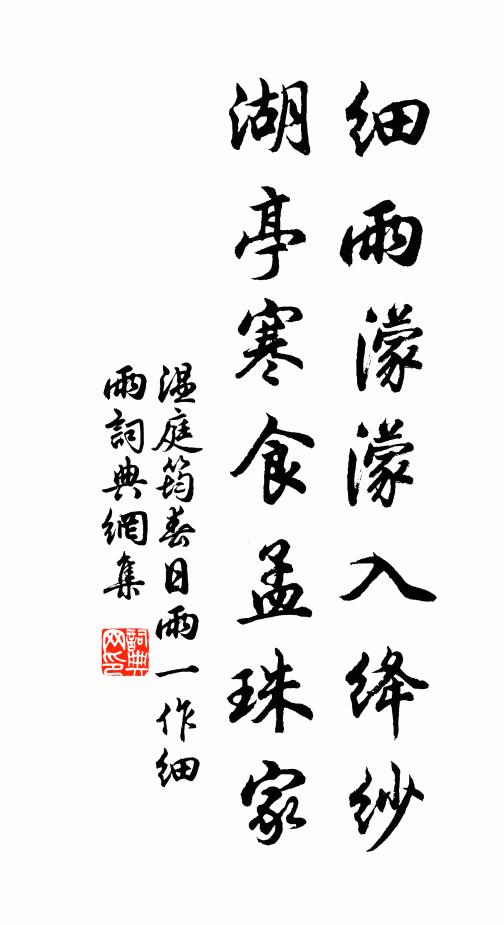 細雨濛濛入絳紗
湖亭寒食孟珠家
溫庭筠春日雨一作細
雨詞典網集
詞典
网印